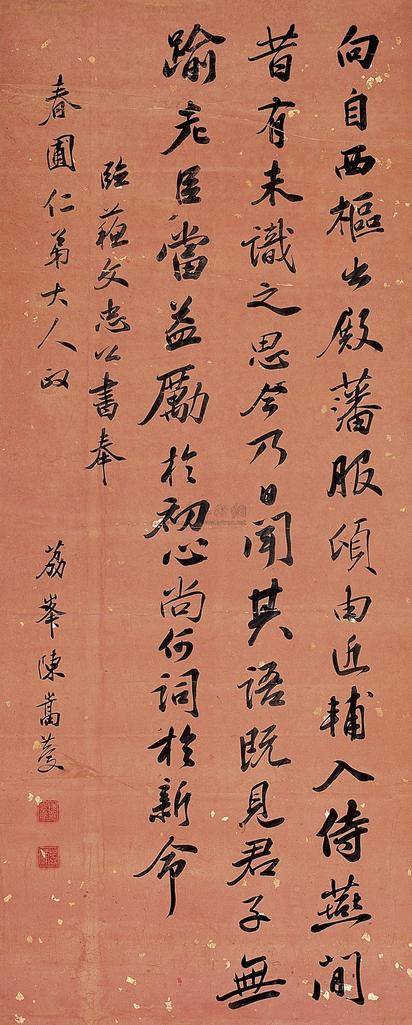 向自西樞出殿藩服頃由近輔入侍燕閒
昔有未識之思今乃日聞其語既見君子無
踰老臣當益勵於初心尚何詞於新命
臨蘇文忠公書奉
春圃仁弟大人政
荔峯陳嵩慶